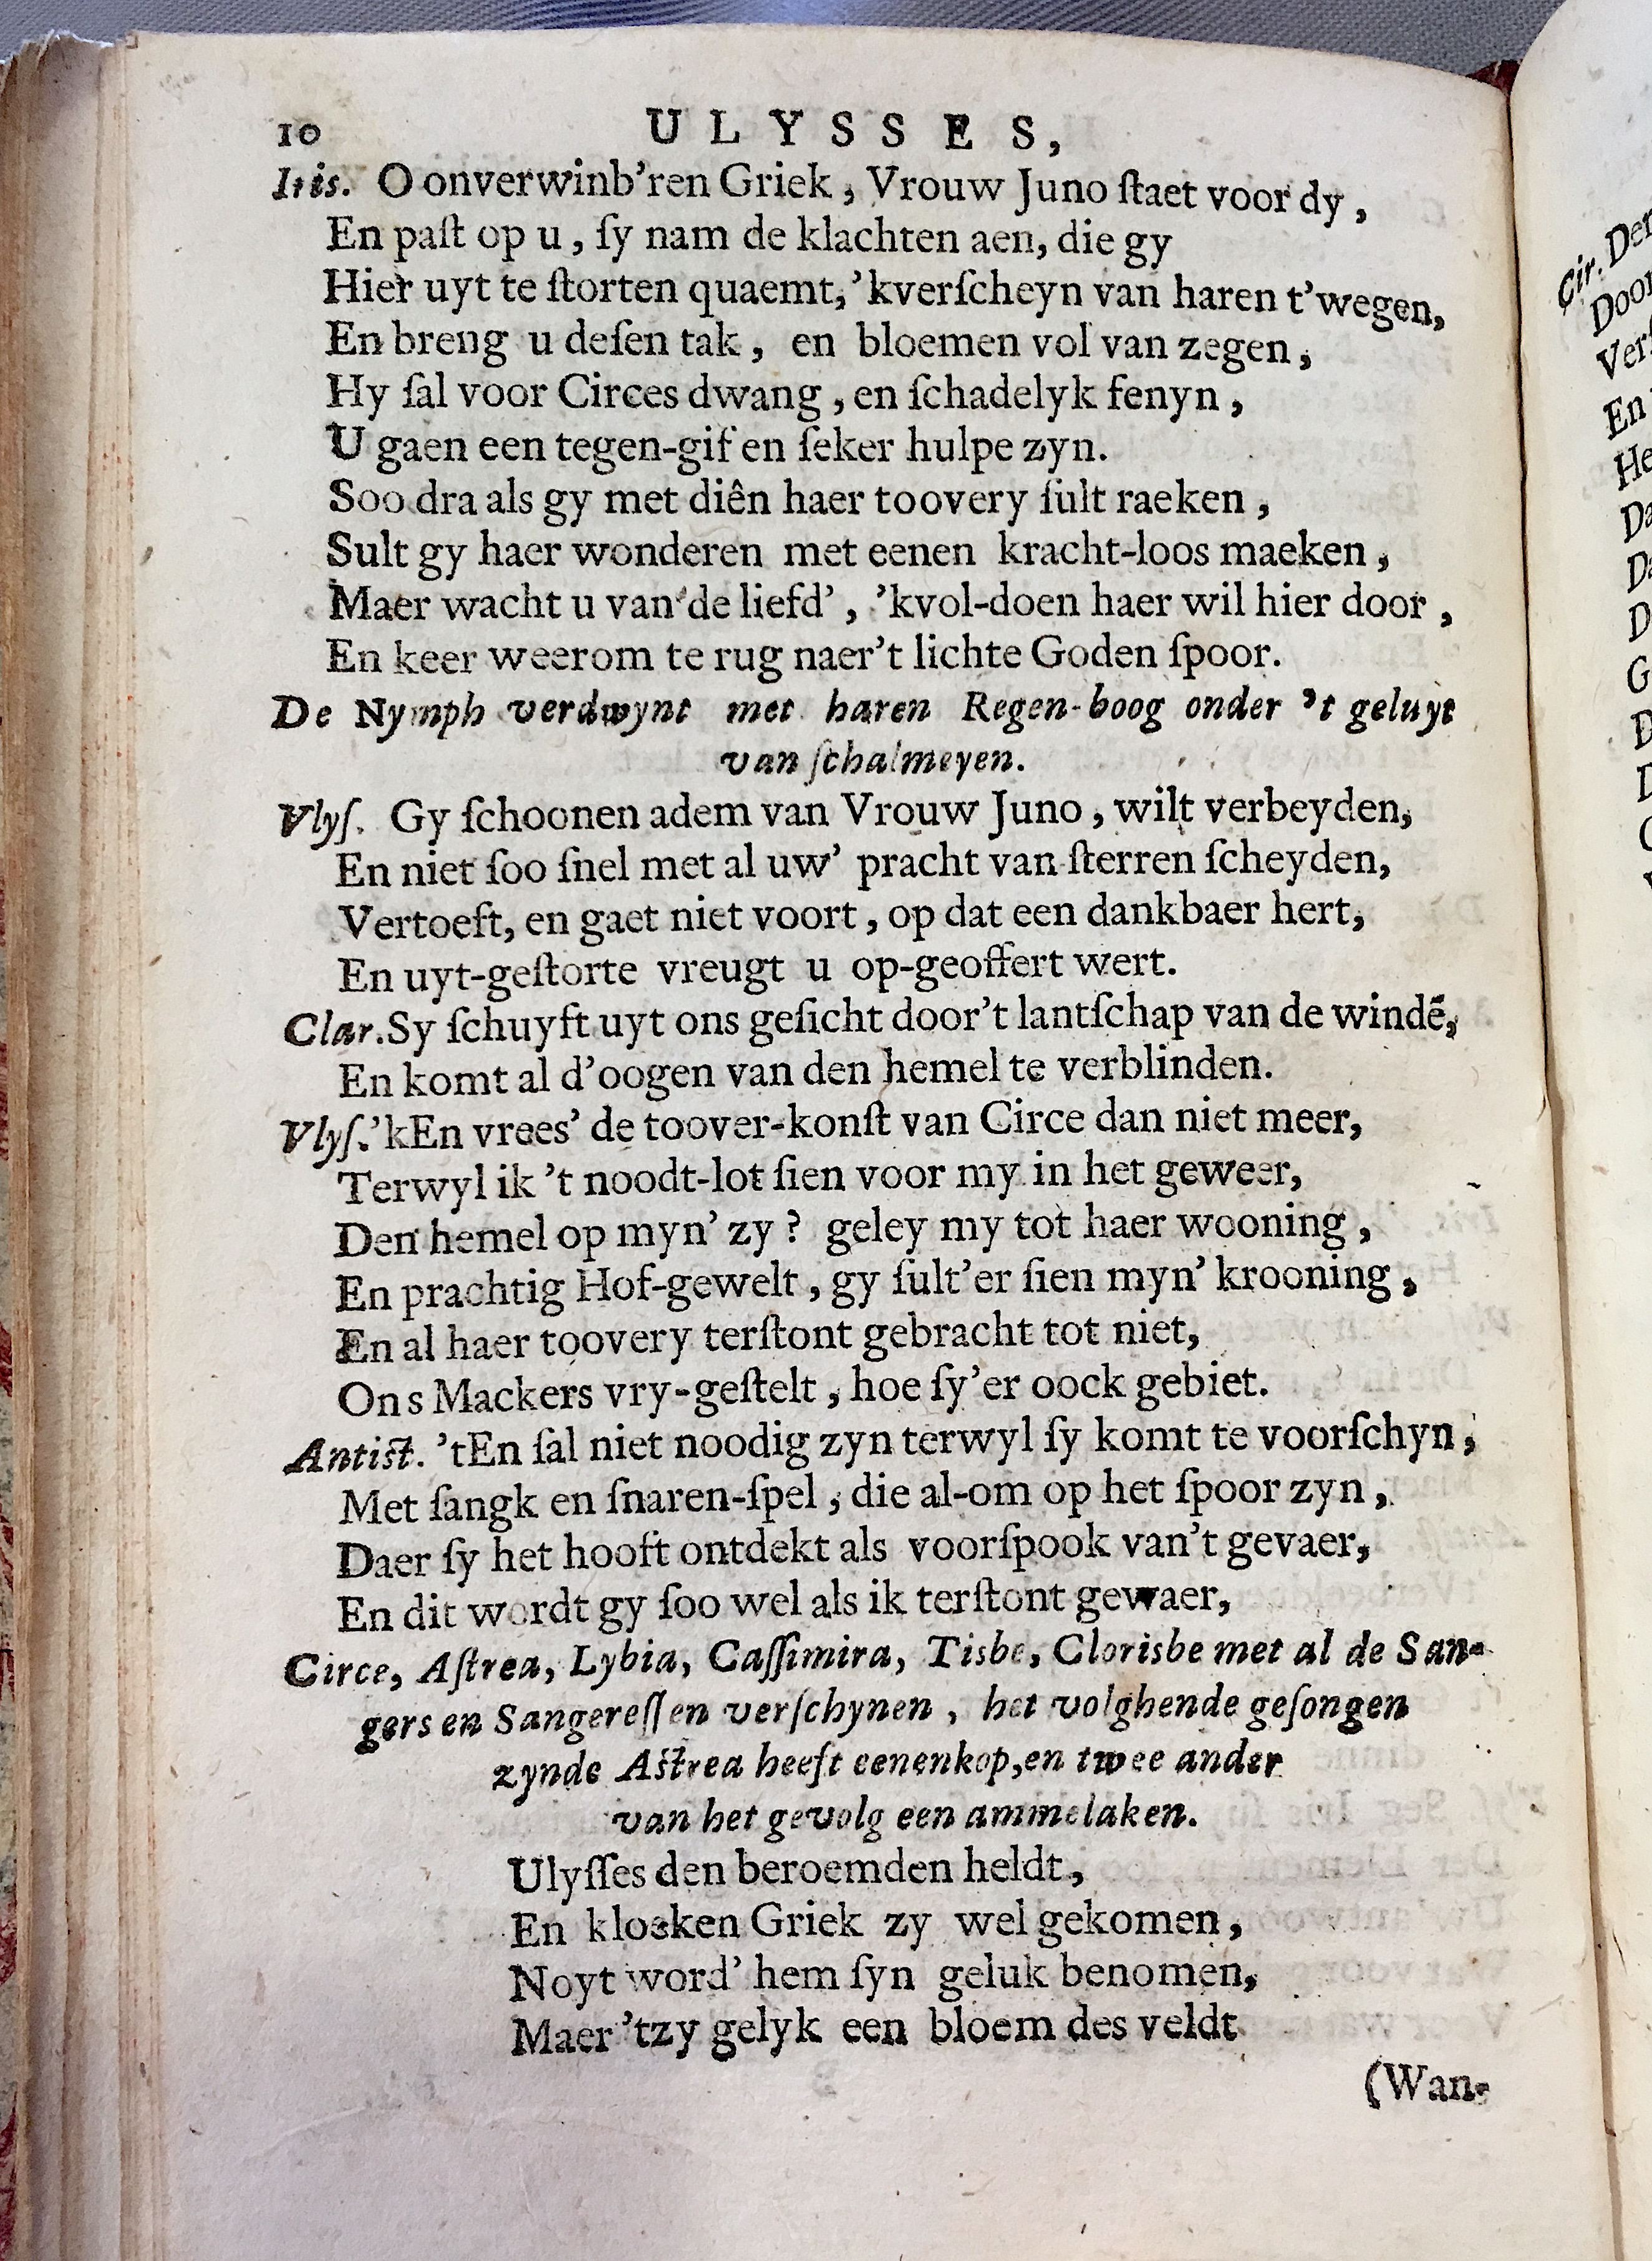 10 ULYSSES,
Iris. O onverwinb'ren Griek, Vrouw Juno ſtaet voor dy,
En paſt op u, ſy nam de klachten aen, die gy
Hier uyt te ſtorten quaemt, 'kverſcheyn van haren t'wegen,
En breng u deſen tak, en bloemen vol van zegen,
Hy ſal voor Circes dwang, en ſchadelyk fenyn,
U gaen een tegen-gif en ſeker hulpe zyn.
Soo dra als gy met diên haer toovery ſult raeken,
Sult gy haer wonderen met eenen kracht-loos maeken,
Maer wacht u van de liefd', 'kvol-doen haer wil hier door,
En keer weerom te rug naer't lichte Goden ſpoor.
De Nymph verdwynt met haren Regen-boog onder 't geluyt
van ſchalmeyen.
Vlyſ. Gy ſchoonen adem van Vrouw Juno, wilt verbeyden,
En niet ſoo ſnel met al uw' pracht van ſterren ſcheyden,
Vertoeft, en gaet niet voort, op dat een dankbaer hert,
En uyt-geſtorte vreugt u op-geoffert wert.
Clar. Sy ſchuyft uyt ons geſicht door't lantſchap van de windē,
En komt al d'oogen van den hemel te verblinden.
Vlyſ. 'kEn vrees' de toover-konſt van Circe dan niet meer,
Terwyl ik 't noodt-lot ſien voor my in het geweer,
Den hemel op myn' zy? geley my tot haer wooning,
En prachtig Hof-gewelt, gy ſult'er ſien myn' krooning,
En al haer toovery terſtont gebracht tot niet,
Ons Mackers vry-geſtelt, hoe ſy'er oock gebiet.
Antiſt. 'tEn ſal niet noodig zyn terwyl ſy komt te voorſchyn,
Met ſangk en ſnaren-ſpel, die al-om op het ſpoor zyn,
Daer ſy het hooft ontdekt als voorſpook van't gevaer,
En dit wordt gy ſoo wel als ik terſtont gewaer,
Circe, Aſtrea, Lybia, Caſſimira, Tisbe, Clorisbe met al de San-
gers en Sangereſſen verſchynen, het volghende geſongen
zynde Aſtrea heeft eenenkop, en twee ander
van het gevolg een ammelaken.
Ulyſſes den beroemden heldt,
En kloeken Griek zy wel gekomen,
Noyt word' hem ſyn geluk benomen,
Maer 'tzy gelyk een bloem des veldt
(Wan-